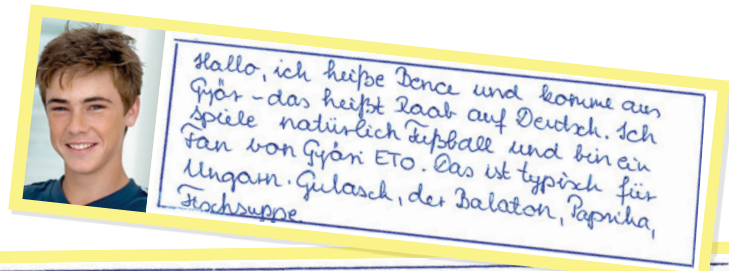 Hallo, ich heiße Bence und komme aus
Győr – das heißt Raab auf Deutsch. Ich
spiele natürlich Fußball und bin ein
Fan von Győri ETO. Das ist typisch für
Ungarn: Gulasch, der Balaton, Paprika,
Fischsuppe.